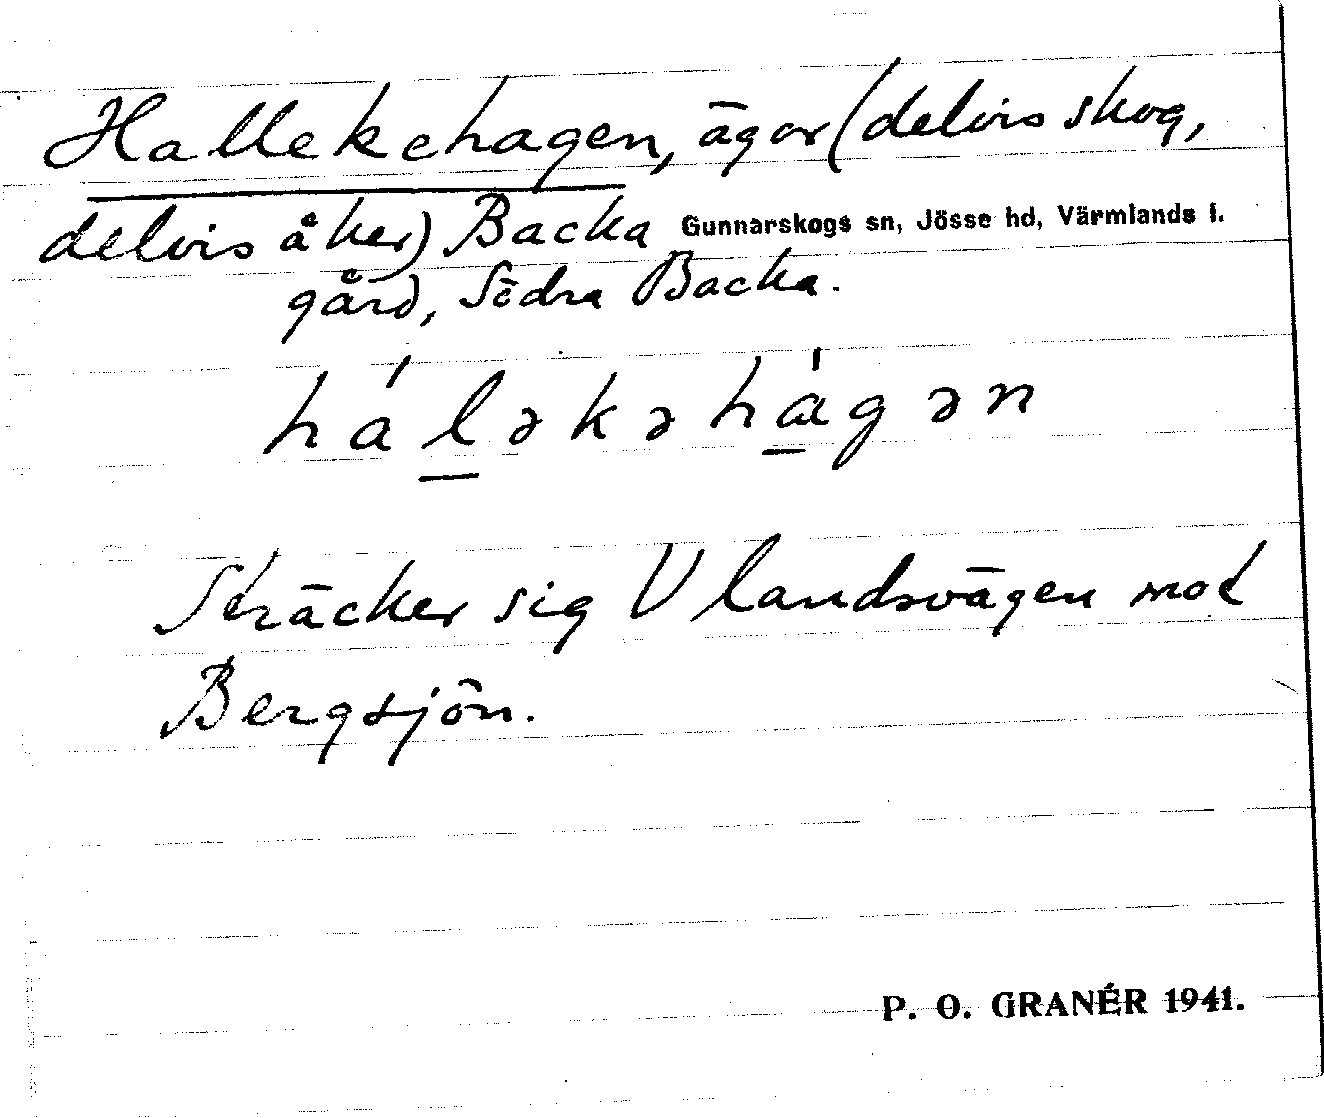 Hallekehagen, ägor (delvis skog,
delvis åker) Backa Gunnarskogs sn, Jösse hd, Värmlands l.
gård, Södra Backa.
hál̲əkəhá̲gən
Sträcker sig V landsvägen mot
Bergsjön.
P. O. GRANÉR 1941.